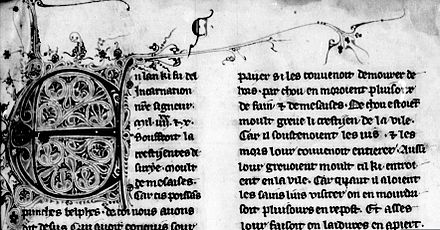 En lan ki fu del
Incarnation
nr̄e signeur.
Souffroit la
crestijentes de
surye. moult
de mesaises.
Car cis
de coi nous auons
dit desus. Qui auoit conquis sour
paiier si les couuenoit demourer de
hors. par chou en moroient plusor.
de fain. & de mesaises. De chou
moult greue li crestijen de la vile.
Car il soustenoient les uis. & les
mors lour couuenoit entierer. Aussi
lour greuoient moult cil ki entroi
ent en la vile. Car quant il aloient
les sains lius visiter on en
soit pluisours en repost. Et asses
lour faisoit on laidures en apiert.